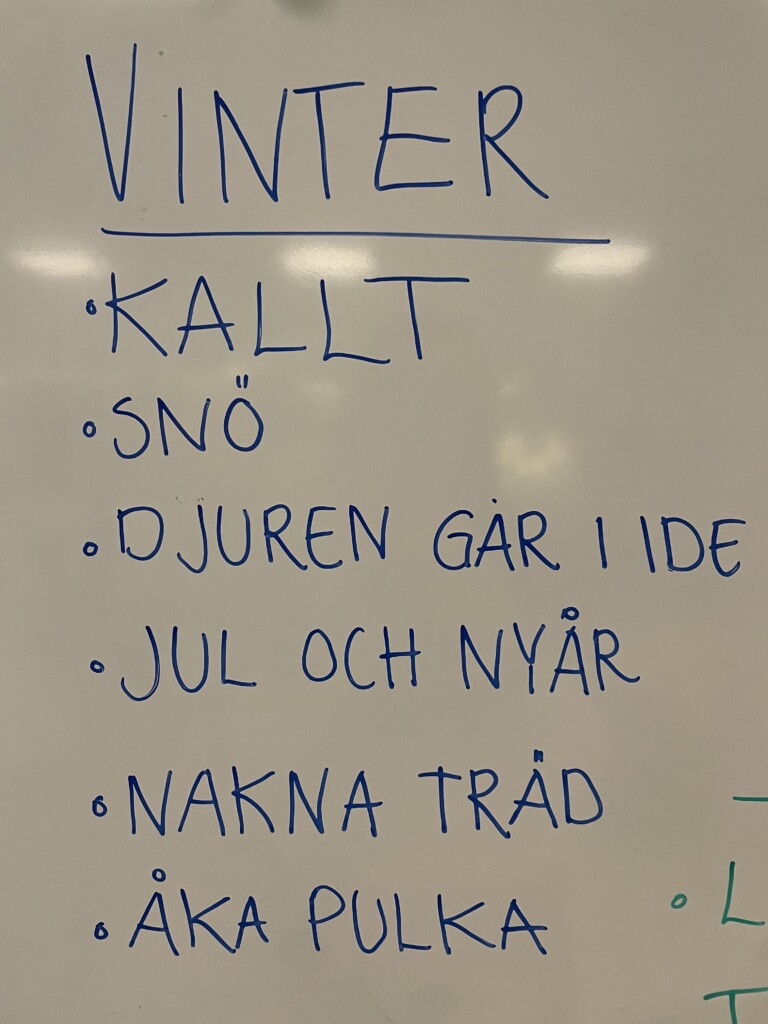 VINTER
• KALLT
• SNÖ
• DJUREN GÅR I IDE
• JUL OCH NYÅR
• NAKNA TRÄD
• ÅKA PULKA